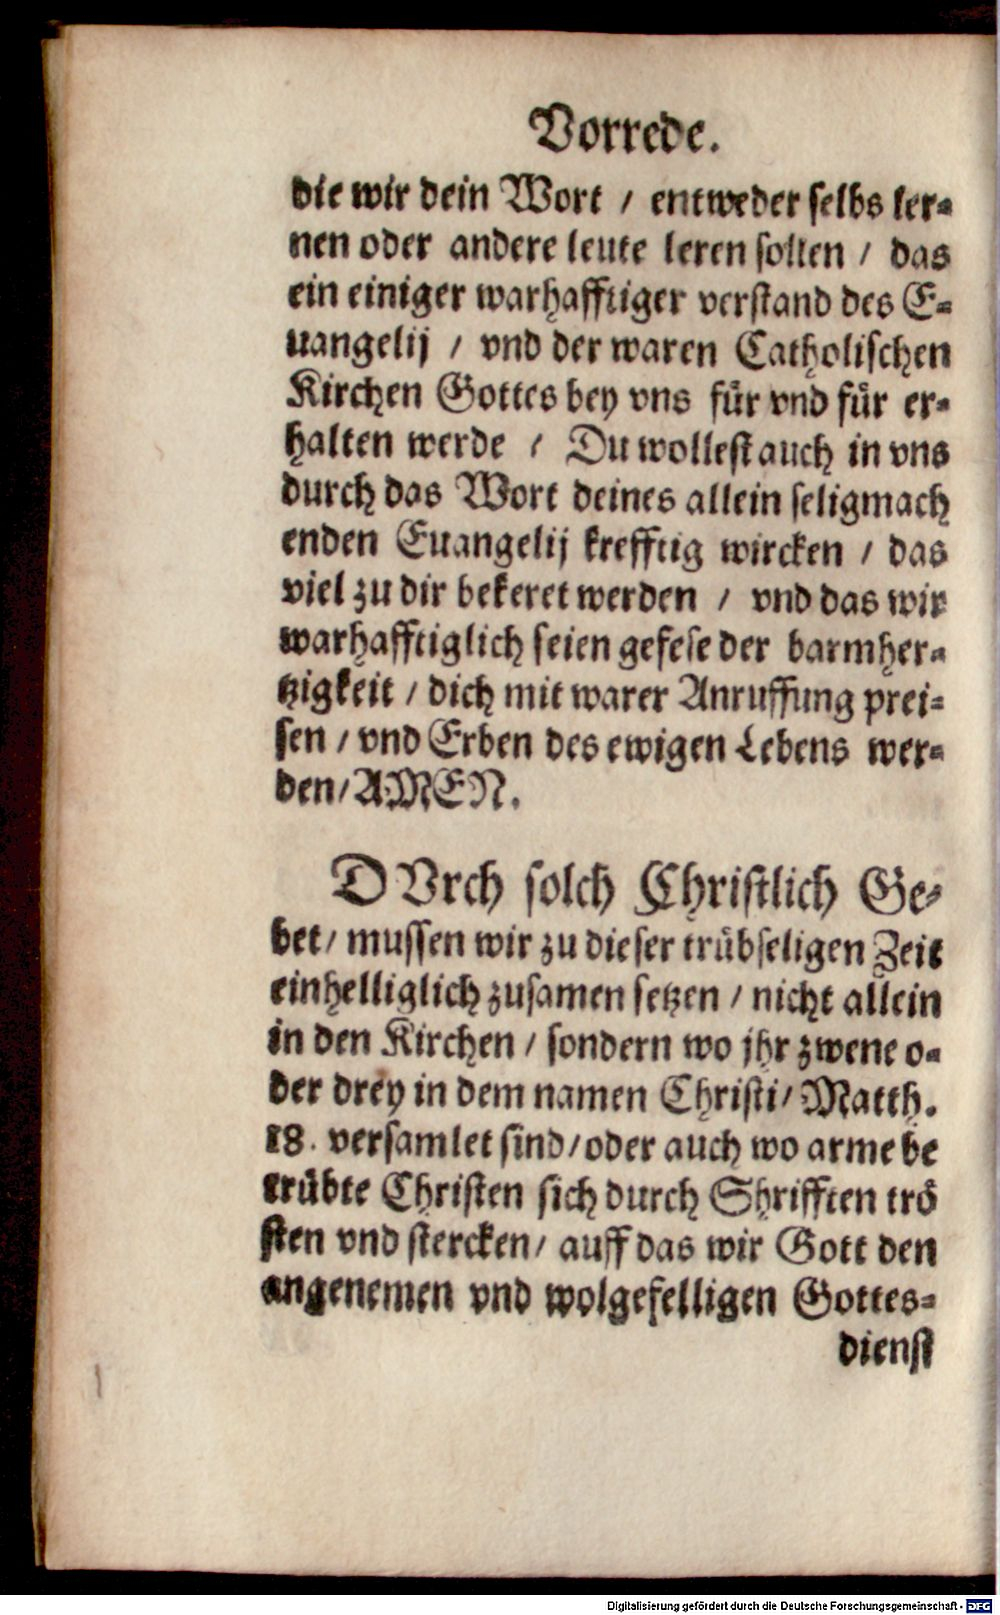 Vorrede.
die wir dein Wort / entweder selbs ler-
nen oder andere leute leren sollen / das
ein einiger warhafftiger verstand des E-
uangelij / vnd der waren Catholischen
Kirchen Gottes bey vns für vnd für er-
halten werde / Du wollest auch in vns
durch das Wort deines allein seligmach
enden Euangelij krefftig wircken / das
viel zu dir bekeret werden / vnd das wir
warhafftiglich seien gefese der barmher-
tzigkeit / dich mit warer Anruffung prei-
sen / vnd Erben des ewigen Lebens wer-
den / AMEN.
DVrch solch Christlich Ge-
bet / mussen wir zu dieser trübseligen Zeit
einhelliglich zusamen setzen / nicht allein
in den Kirchen / sondern wo jhr zwene o-
der drey in dem namen Christi / Matth.
18. versamlet sind / oder auch wo arme be
trübte Christen sich durch Shrifften trö
sten vnd stercken / auff das wir Gott den
angenemen vnd wolgefelligen Gottes-
dienst
Digitalisierung gefördert durch die Deutsche Forschungsgemeinschaft - DFG